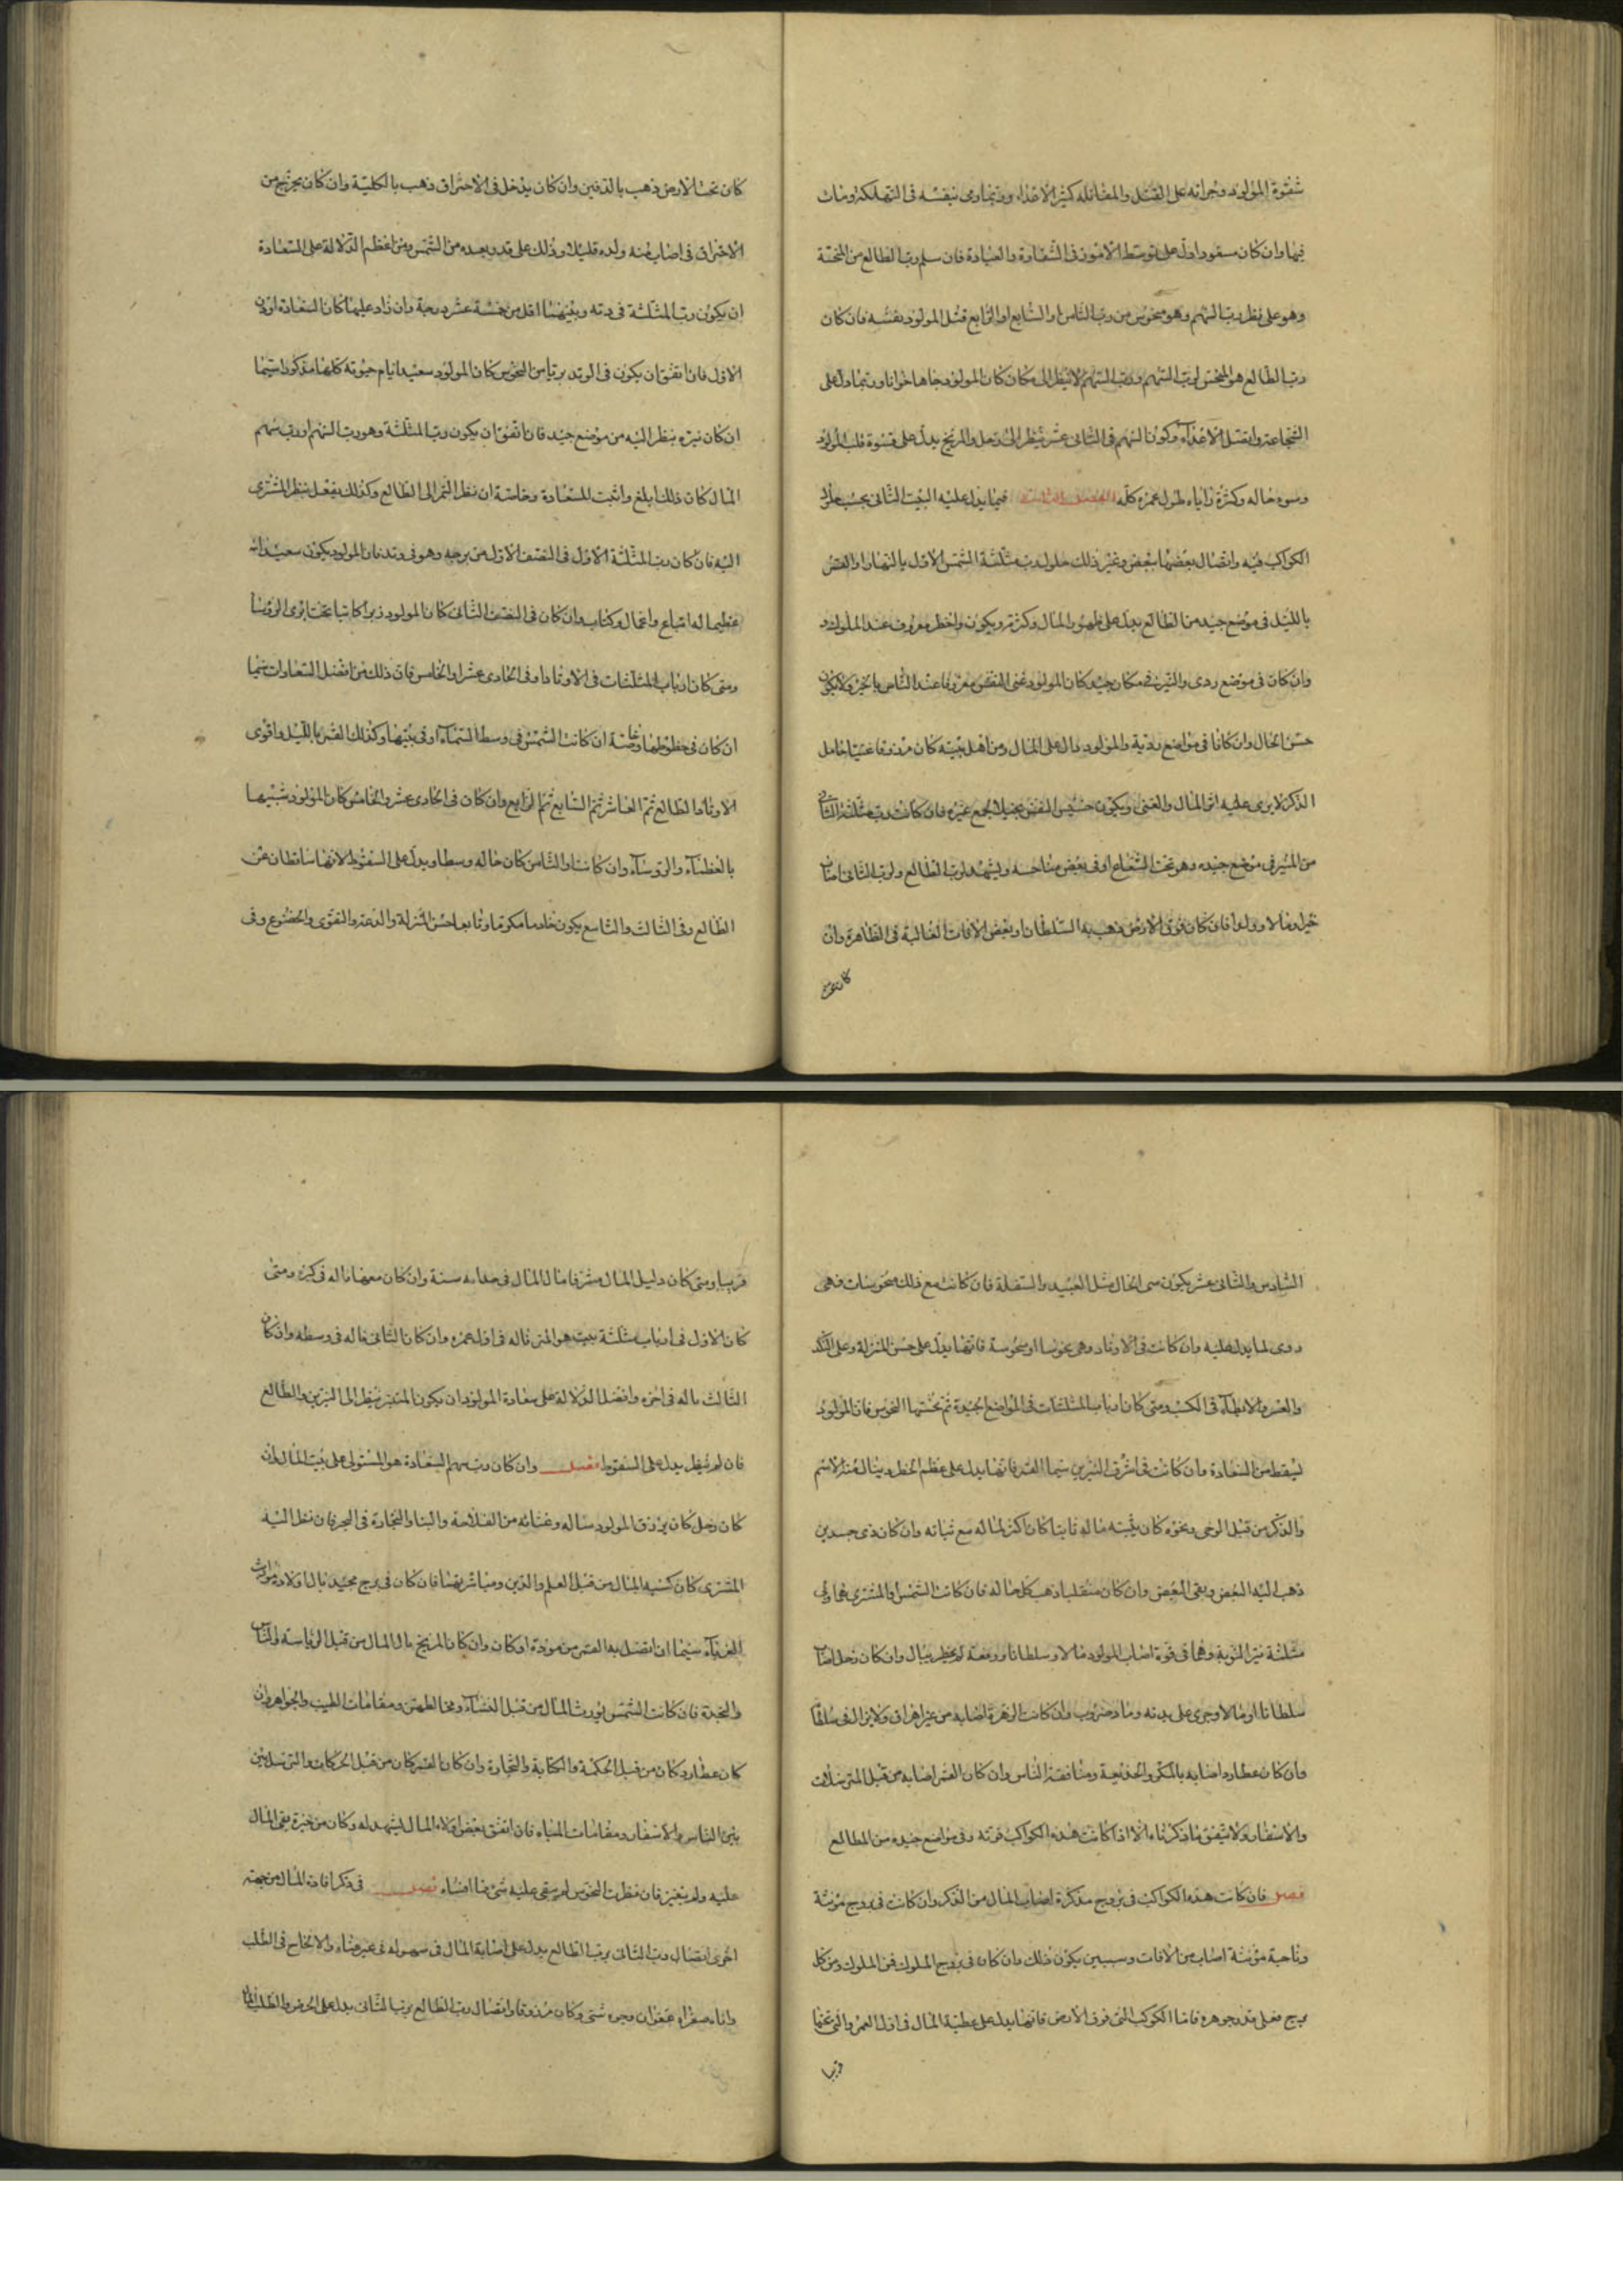 شقوة المولود وجراته على القتل والمقاتلة كثير الاعداء وربما رمى بنفسه فى التهلكة ومات
فيها وان كان مسعودا دل على توسط الامور فى الشقاوة والعبادة فان سلم رب الطالع من المنحسة
وهو على نظر رب السهم وهو منحوس من رب الثامن او السابع او الرابع قتل المولود نفسه فان كان
رب الطالع هو المنحس لرب السهم ورب السهم لا ينظر الى مكان كان المولود جاها خوانا وربما دل على
الشجاعة وان قتل الاعداء وكون السهم فى الثانى عشر ينظر الى زحل والمريخ يدل على قسوة قلب المولود
وسوء حاله وكثرة زاياه طول عمره كله الفصل الثالث فيما يدل عليه البيت الثانى بحسب حلول
الكواكب فيه واتصال بعضها ببعض وغير ذلك حلول رب مثلثة الشمس الاول بالنهار او القمر
بالليل فى موضع جيد من الطالع يدل على ظهور المال وكثرته ويكون ذا خطر معروف عند الملوك و
وان كان فى موضع ردى والنيرين فى مكان جيد كان المولود غنى النفس معروفا عند الناس بالخير ولا يكون
حسن الحال وان كانا فى مواضع ردية والمولود دال على المال ومن اهل بيته كان مرزوقا غنيا خامل
الذكر لا يرى عليه اثر المال والغنى ويكون خسيس النفس بخيلا يجمع غيره فان كانت رب مثلثة الثانى
من المنير فى موضع جيد وهو تحت الشعاع او فى بعض مناحسه ويشهد لرب الطالع ولرب الثانى اصاب
خيرا ومالا وولدا فان كان فوق الارض ذهب به السلطان او بعض الافات الغالبة فى الظاهرة وان
كان تحت الارض ذهب بالدفين وان كان يدخل فى الاحتراق ذهب بالكلية وان كان يخرج من
الاحتراق فى اصاب منه ولده قليلا وذلك على قدر بعده من الشمس ومن اعظم الدلالة على السعادة
ان يكون رب المثلثة فى وتد وبينهما اقل من خمسة عشر درجة وان زاد عليها كان السعادة ادون
الاول فان اتفق ان يكون فى الوتد بريا من النحوس كان المولود سعيدا ايام حيوته كلها مذكورا سيما
ان كان نيره ينظر اليه من موضع جيد فان اتفق ان يكون رب المثلثة وهو رب السهم او رب سهم
المال كان ذلك ابلغ واثبت للسعادة وخاصة ان نظر القمر الى الطالع وكذلك يفعل بنظر المشترى
اليه فان كان رب المثلثة الاول فى النصف الاول من برجه وهو فى وتد فان المولود يكون سعيدا
عظيما له اتباع واعمال وكتاب وان كان فى النصف الثانى كان المولود وزيرا كاتبا تحت ايدى الرؤسا
ومتى كان ارباب المثلثات فى الاوتاد او فى الحادى عشر او الخامس فان ذلك من افضل السعادات سيما
ان كان فى حظوظها وخاصة ان كانت الشمس فى وسط السماء او فى بيتها وكذلك القمر بالليل واقوى
الاوتاد الطالع ثم العاشر ثم السابع ثم الرابع وان كان فى الحادى عشر والخامس كان المولود شبيها
بالعظماء والروساء وان كانا والثامن كان حاله وسطا ويدل على السقوط لانهما ساقطان عن
الطالع وفى الثالث والتاسع يكون خادما مكوما وتابعا حسن المنزلة والدعة والتقوى والخضوع وفى
السادس والثانى عشر يكون سى الحال مثل العبيد والسفلة فان كانت مع ذلك منحوسات فهى
ردى لما يدل عليه وان كانت فى الاوتاد وهى نحوسا او منحوسة فانها يدل على حسن المنزلة وعلى النكد
والعسر والابطاء فى الكسب ومتى كان ارباب المثلثات فى المواضع الجيدة ثم نحستها النحوس فان المولود
ليسقط من السعادة وان كانت فى اشرق النيرين سيما القمر فانها يدل على عظم الخطر وينال منه الاسم
والذكر من قبل الوحى ونحوه كان بيته ماله ثابتا كان اكثر لماله مع ثباته وان كان ذى جسدين
ذهب اليه البعض وبقى البعض وان كان منقلبا ذهب كل ماله فان كانت الشمس والمشترى هما ولى
مثلثة نير النوبة وهما فى قوة اصاب المولود مالا وسلطانا ورفعة لم يخطر ببال وان كان زحل اصاب
سلطانا او مالا وجرى على يديه دماء وحروب وان كانت الزهرة اصابه من غير اهراق ولايزال فى سلطان
وان كان عطارد اصابه بالمكر والخديعة ومنافقة الناس وان كان القمر اصابه من قبل الترسلات
والاسفار ولا يتفق ما ذكرناه الا اذا كانت هذه الكواكب قوته وفى مواضع جيده من الطالع
فصل فان كانت هذه الكواكب فى بروج مذكرة اصاب المال من الذكر وان كانت فى بروج مونثة
وناحية مؤنثة اصاب من الافات وسببين يكون ذلك وان كان فى بروج الملوك فمن الملوك ومن كل
برج فعلى قدر جوهره فاما الكوكب التى فوق الارض فانها يدل على عطية المال فى اول العمر والتى تحتها
قريبا ومتى كان دليل المال مشرقا نال المال فى حداثه سنه وان كان مغربا ناله فى كبره ومتى
كان الاول فى ارباب مثلثة بيت هو المنى ناله فى اول عمره وان كان الثانى فاله فى وسطه وان كان
الثالث ناله فى اخره وافضل الدلالة على سعادة المولود ان يكون المنير ينظر الى النيرين والطالع
فان لم ينظر يدل على السقوط فصل وان كان رب سهم السعادة هو المستولى على بيت المال فان
كان زحل كان يرزق المولود ماله وغنائه من الفلاحة والبنا والتجارة فى البحر فان نظر اليه
المشترى كان كسبه المال من قبل العلم والدين ومباشر ايضا فان كان فى برج مجيد نال اولاده مواريث
الغرباء سيما ان اتصل به القمر من مودة او كان وان كان المريخ نال المال من قبل الرياسة والباس
والنجدة فان كانت الشمس لورث المال من قبل النساء ومخالطهن ومقامات الطيب والجواهر وان
كان عطارد كان من قبل الحكمة والكتابة والتجارة وان كان القمر كان من قبل الحركات والترسل بين
بين الناس والاسفار ومقامات المياه فان اتفق بعض اولاد المال ليشهد له وكان من خيره بقى المال
عليه ولم يتغير فان نظرت النحوس لم يبقى عليه شى مما افناه فصل فى ذكر افادة المال من جهة
اخرى اتصال رب الثانى برب الطالع يدل على اصابة المال فى سهوله فى غير عناء والالحاح فى الطلب
واتاه صفرا عفوا من وجوه شتى وكان مرزوقا واتصال رب الطالع برب الثانى يدل على الحرص والطلب